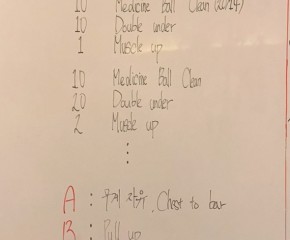 10 Medicine Ball Clean (20/14)
10 Double under
1 Muscle up
10 Medicine Ball Clean
20 Double under
2 Muscle up
⋮
A : 무게 자유, Chest to bar
B : Pull up